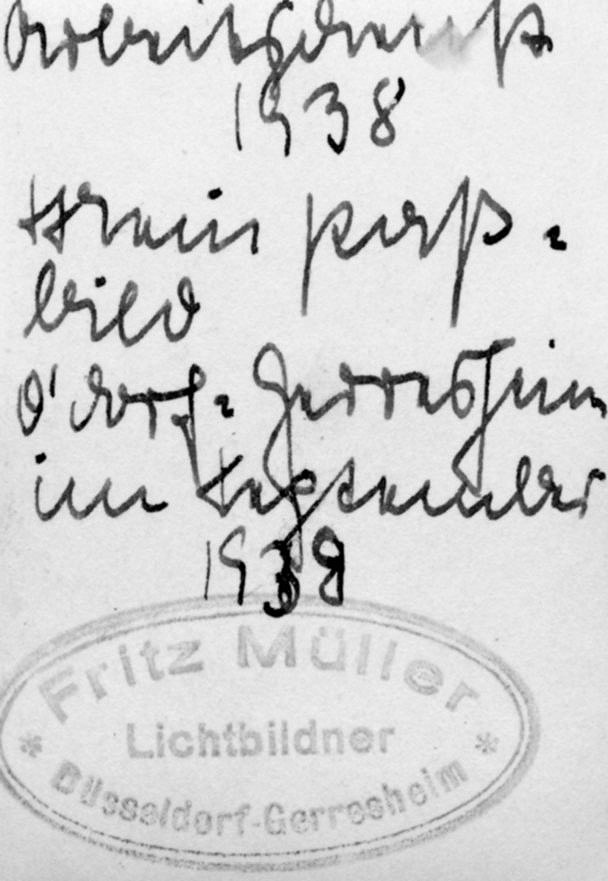 Arbeitsdienst
1938
Mein Paß-
bild
D'dorf-Gerresheim
im September
1938
Fritz Müller
Lichtbildner
* Düsseldorf-Gerresheim *